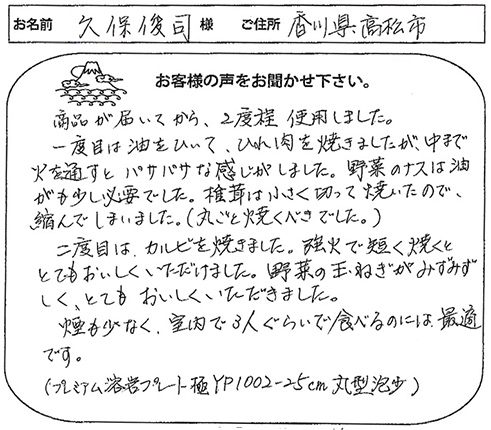 お名前 久保俊司 様 ご住所 香川県高松市
お客様の声をお聞かせ下さい。
商品が届いてから、2度程 使用しました。
一度目は油をひいて、ひれ肉を焼きましたが、中まで
火を通すと パサパサな感じがしました。野菜のナスは油
がも少し必要でした。椎茸は小さく切って焼いたので、
縮んでしまいました。(丸ごと焼くべきでした。)
二度目は、カルビを焼きました。強火で短く焼くと
とてもおいしくいただけました。野菜の玉ねぎがみずみず
しく、とても おいしくいただきました。
煙も少なく、室内で3人ぐらいで食べるのには、最適
です。
(プレミアム溶岩プレート極YP1002-25cm 丸型泡少)